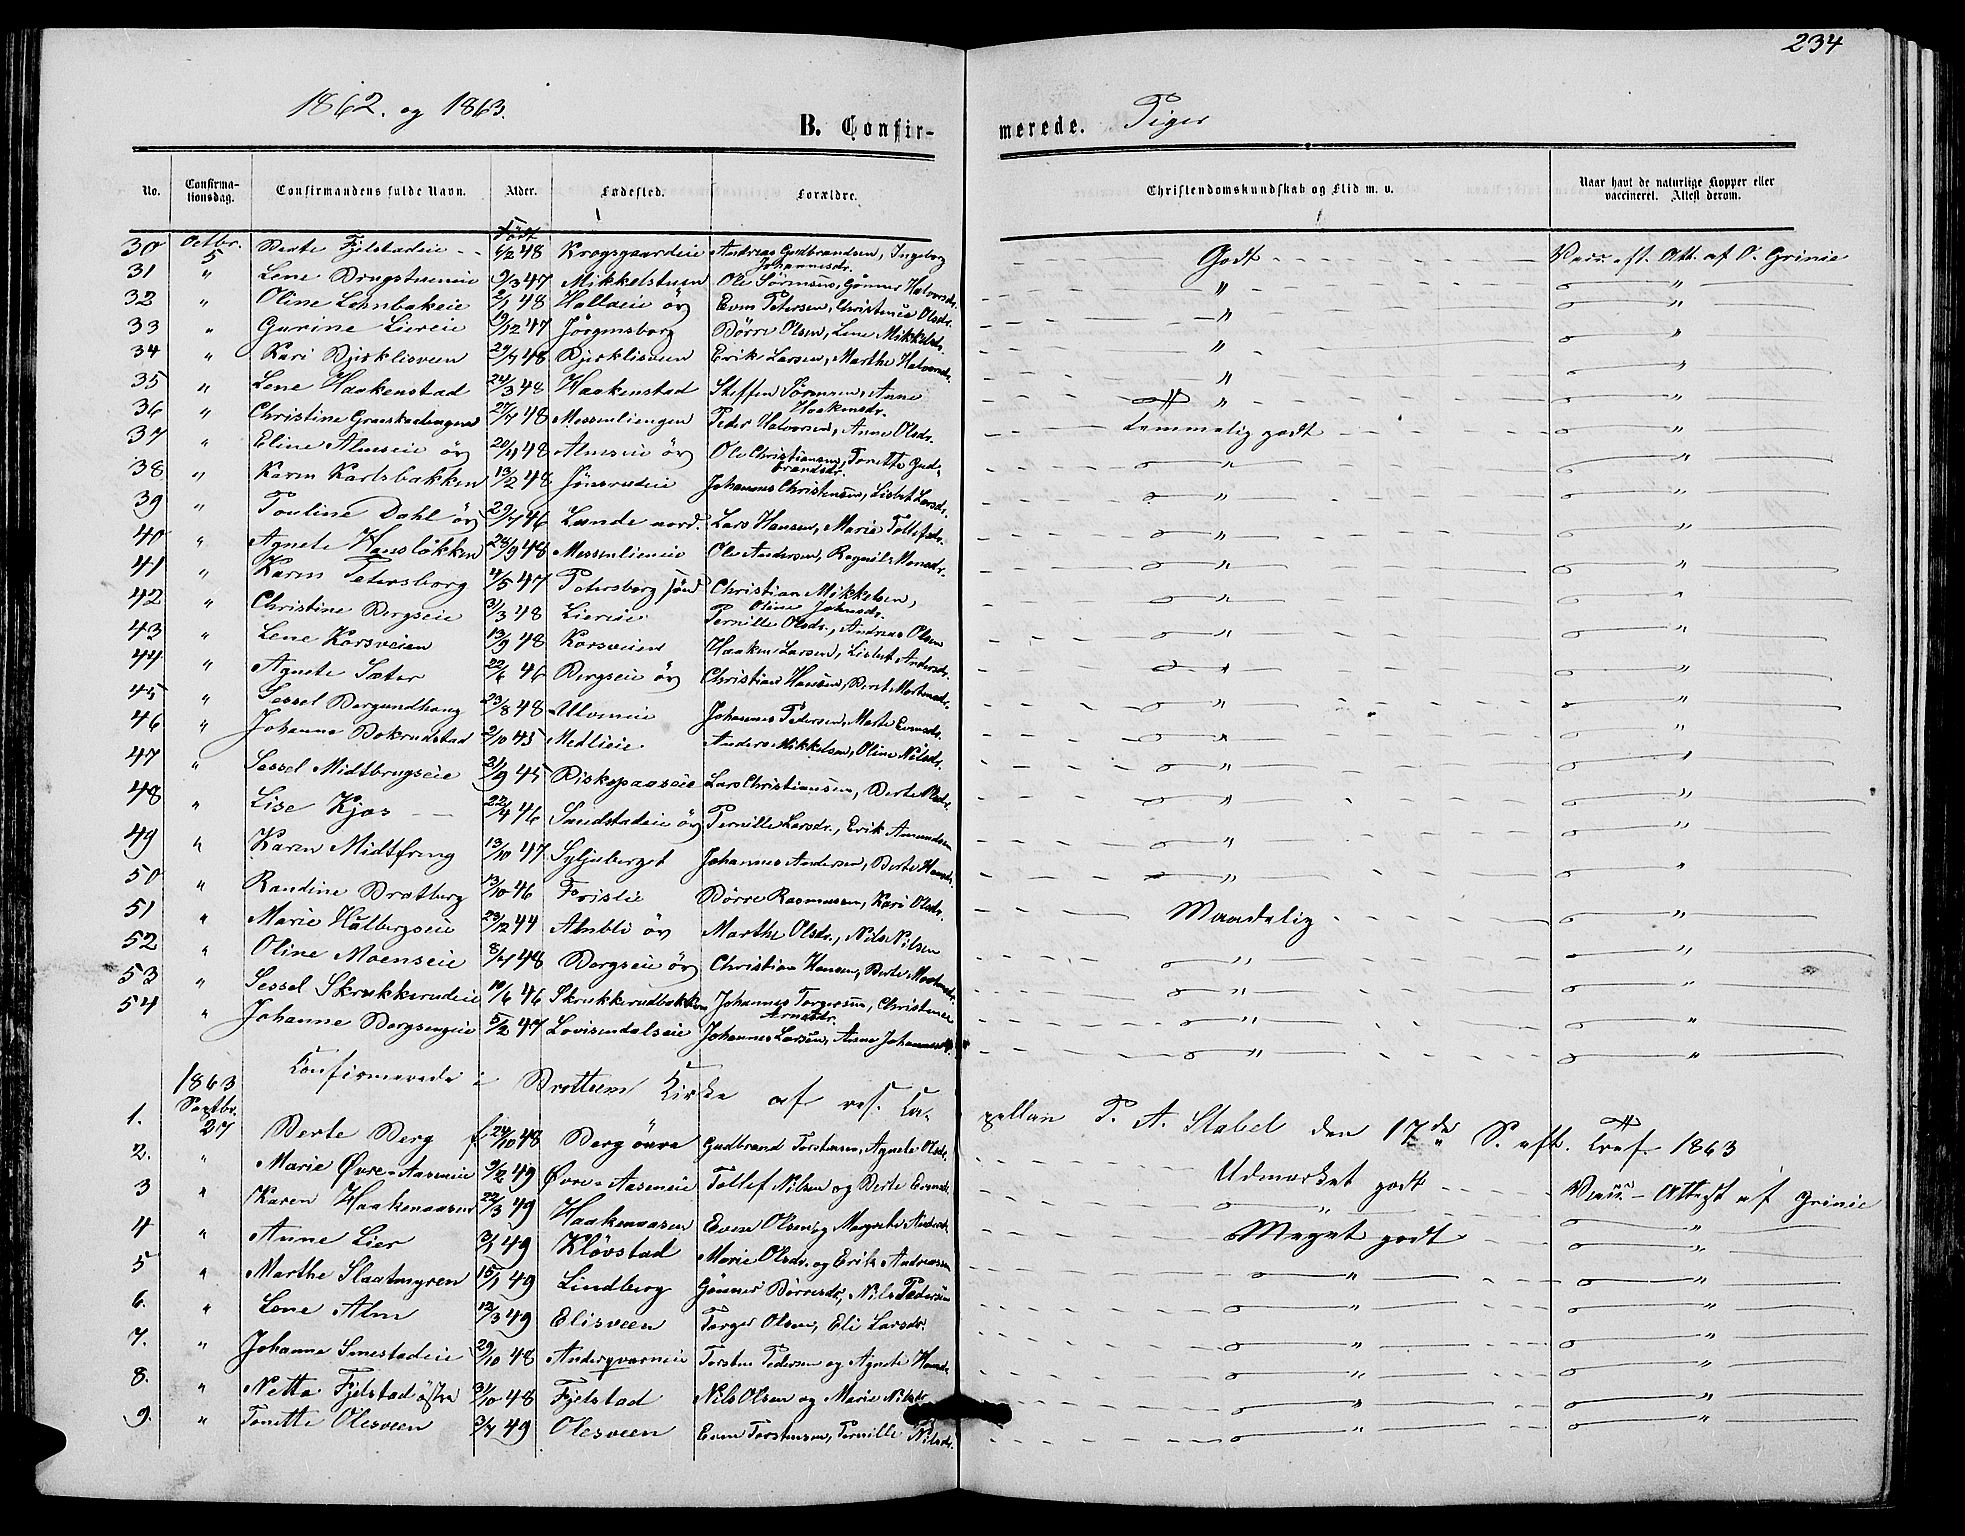 234
1862. og 1863.
B. Confirmerede. Piger
No. Confirmationsdag. Confirmandens fulde Navn. Alder. Fødested. Forældre. Christendomskundskab og Flid m. v. Naar havt de naturlige Kopper eller vaccineret. Attest derom.
Født
30 Octbr. 5 Berte Fjelstadeie 6/2 48 Krogsgaardeie Andreas Gudbrandsen, Ingeborg Johannesdr. Godt Vacc. eft. Att. af O. Grinie
31 " Lene Brugstueneie 9/3 47 Mikkelstuen Ole Sörensen, Gönner Halvorsdr. " "
32 " Oline Lehnbakeie 2/1 48 Hallseie öv Even Petersen, Christence Olsdr. " "
33 " Gurine Liereie 19/12 47 Jörgensborg Börre Olsen, Lene Mikkelsdr. " "
34 " Kari Bjerklisveen 29/7 48 Bjerkliseen Erik Larsen, Marthe Halvorsdr. " "
35 " Lene Haakenstad 24/3 48 Haakenstad Steffen Sörensen, Anne Haakensdr. " "
36 " Christine 27/7 48 Messenliengen Peder Halvorsen, Anne Olsdr. Temmelig godt "
37 " Eline Almseie öv 20/4 48 Almseie öv Ole Christiansen, Tonette Gudbrandsdr. " "
38 " Karen Karlsbakken 13/2 48 Jönsrudeie Johannes Christensen, Lisbet Larsdr. " "
39 " Pouline Dahl öv 29/7 46 Lunde nord. Lars Hansen, Marie Tollefsdr. " "
40 " Agnete Hansløkken 28/9 48 Messenlieneie Ole Andersen, Ragnil Monsdr. " "
41 " Karen Petersborg 4/5 47 Petersborg Christian Mikkelsen, Oline Johnsdr. " "
42 " Christine Bergseie 31/3 48 Liereie Pernille Olsdr., Andreas Olsen " "
43 " Lene Korsveien 13/9 48 Korsveien Haaken Larsen, Lisbet Andersdr. " "
44 " Agnete Sæter 22/6 46 Bergseie öv Christian Hansen, Beret Mortensdr. " "
45 " Sessel Bergundhaug 23/8 48 Ulveneie Johannes Pedersen, Marte Evensdr. " "
46 " Johanne Bokrudstad 2/10 45 Medlieie Anders Mikkelsen, Oline Nilsdr. " "
47 " Sessel Midtbrugseie 21/9 45 Biskopaaseie Lars Christiansen, Berte Olsdr. " "
48 " Lise Kjos 22/4 46 Sundstadeie öv Pernille Larsdr., Erik Amundsen " "
49 " Karen Midtfreng 13/10 47 Syljuberget Johannes Andersen, Berte Hansdr. " "
50 " Randine Bratberg 13/10 46 Frislie Börre Rasmussen, Kari Olsdr. " "
51 " Marie Halbergseie 23/12 44 Almbli öv Marthe Olsdr., Nils Nilsen Maadelig "
52 " Oline Moenseie 8/4 48 Bergseie öv Christian Hansen, Berte Mortensdr. " "
53 " Sessel Skrukkerudeie 10/6 46 Skrukkerudbakken Johannes Torgersen, Christence Arnesdr. " "
54 " Johanne Bergsengeie 5/2 47 Lovisendalseie Johannes Larsen, Anne Johannesdr. " "
Confirmerede i Brøttum Kirke af res. Capellan P. A. Stabel den 17de S. eft. Tref. 1863
1863 Septbr.
1. 27 Berte Berg f. 24/10 48 Berg övre Gudbrand Torstensen, Agnete Olsdr. Udmærket godt Vacc. Attest af Grinie
2. " Marie Øvre-Aaseneie 9/2 49 Øvre-Aaseneie Tollef Nilsen og Berte Evensdr. " "
3 " Karen Haakenaasen 22/3 49 Haakenaasen Even Olsen og Magrete Andersdr. Meget godt "
4 " Anne Lier 3/1 49 Klövstad Marie Olsdr. og Erik Andreasen " "
5 " Marthe Slaatmyren 15/1 49 Lindberg Gönner Börresdr., Nils Pedersen " "
6. " Lene Alm 12/3 49 Elisveen Torger Olsen, Eli Larsdr. " "
7. " Johanne Smestadeie 29/10 48 Anderqværneie Torsten Pedersen og Agnete Hansdr. " "
8. " Netta Fjelstad östre 31/10 48 Fjelstad Nils Olsen og Marie Nilsdr. " "
9. " Tonette Olesveen 3/7 49 Olesveen Even Torstensen, Pernille Nilsdr. " "